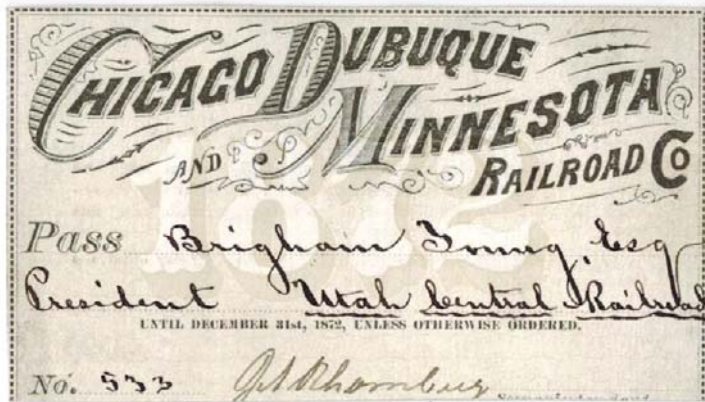 CHICAGO DUBUQUE
AND MINNESOTA
RAILROAD CO
1872
Pass Brigham Young, Esq
President Utah Central Railroad
UNTIL DECEMBER 31st, 1872, UNLESS OTHERWISE ORDERED.
No. 533